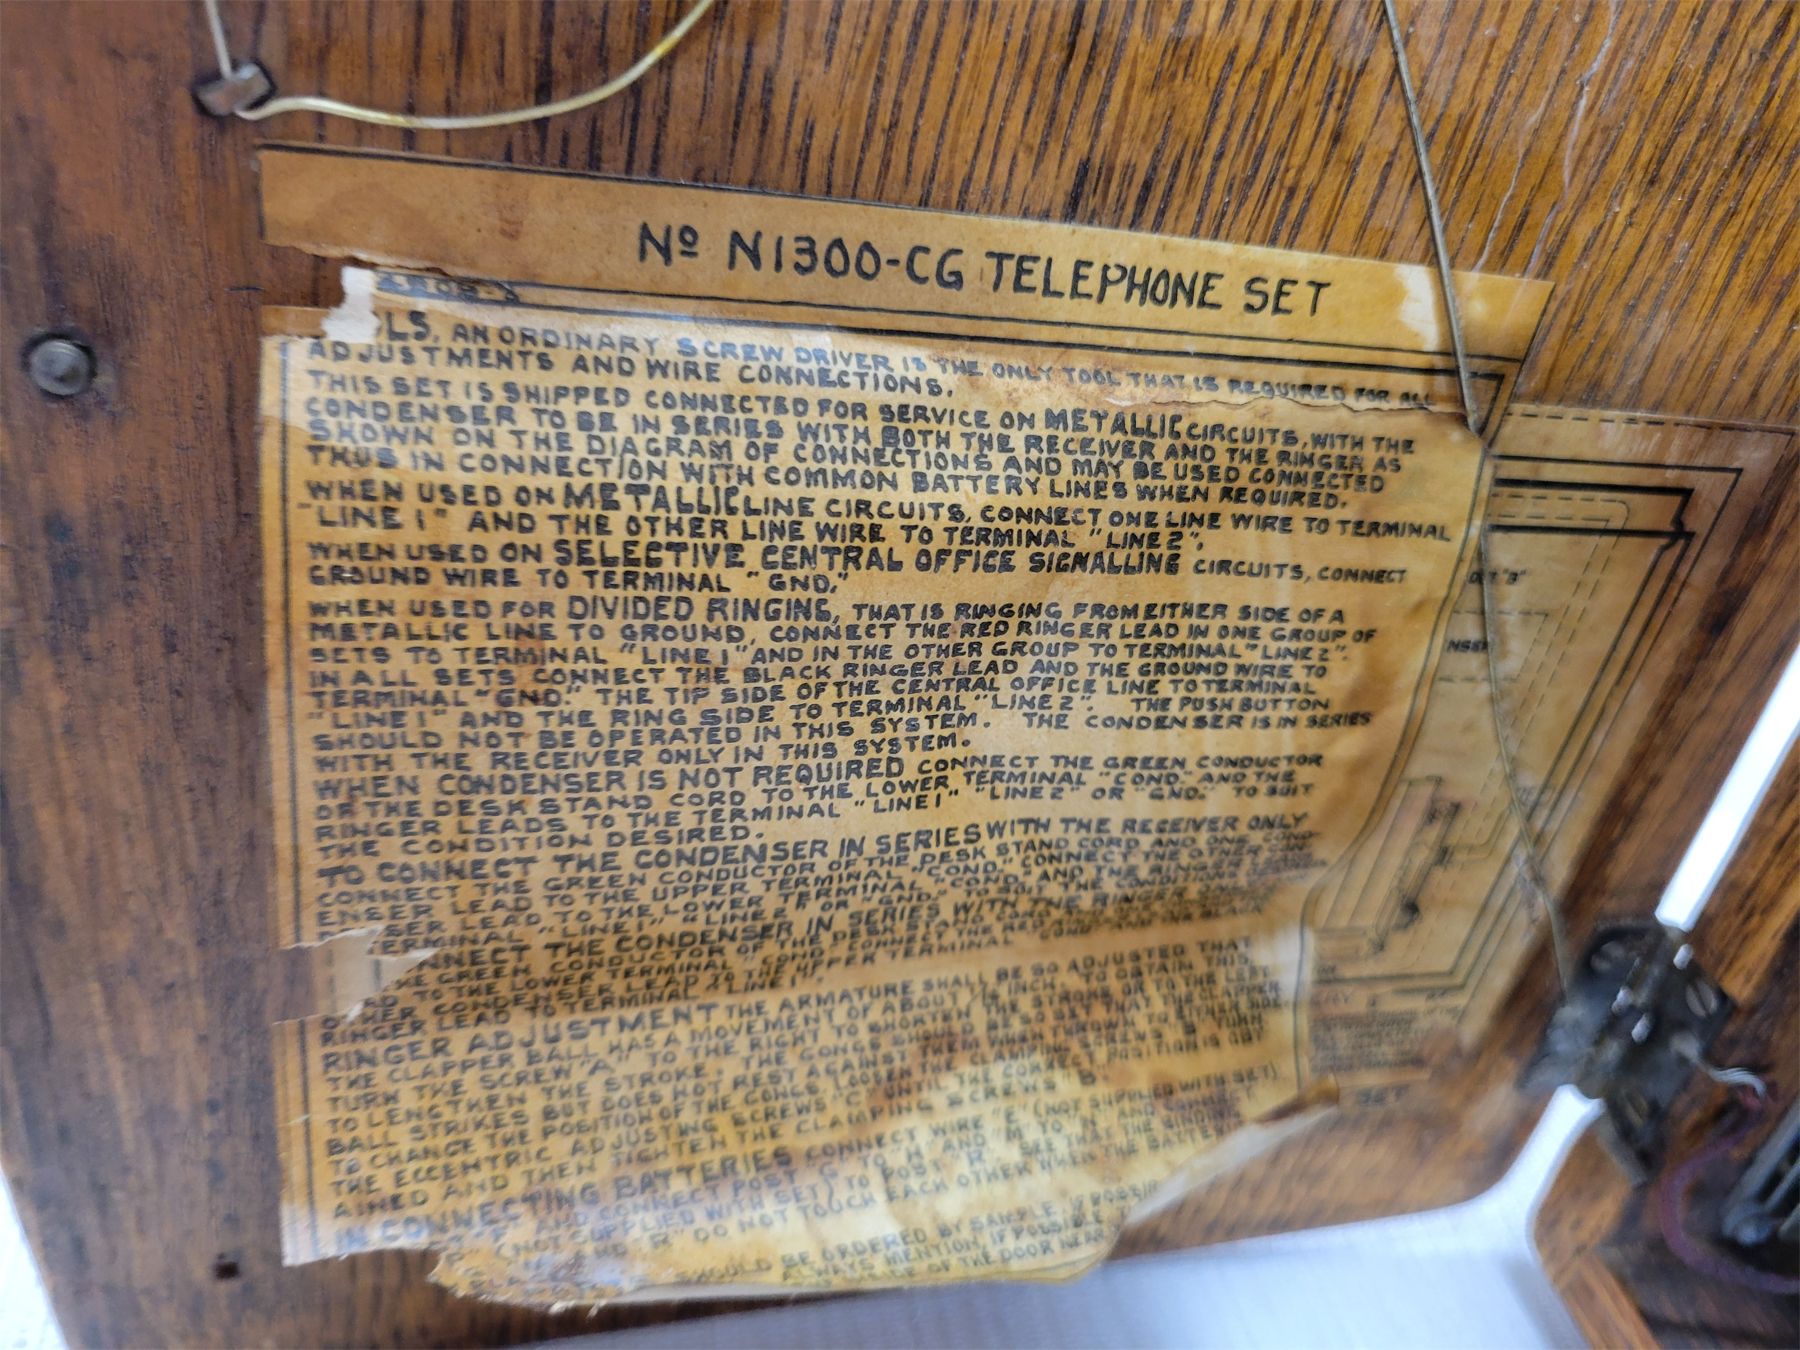 Nº N1300-CG TELEPHONE SET
LS, AN ORDINARY SCREW DRIVER IS THE ONLY TOOL THAT IS REQUIRED FOR ALL
ADJUSTMENTS AND WIRE CONNECTIONS.
THIS SET IS SHIPPED CONNECTED FOR SERVICE ON METALLIC CIRCUITS, WITH THE
CONDENSER TO BE IN SERIES WITH BOTH THE RECEIVER AND THE RINGER AS
SHOWN ON THE DIAGRAM OF CONNECTIONS AND MAY BE USED CONNECTED
THUS IN CONNECTION WITH COMMON BATTERY LINES WHEN REQUIRED.
WHEN USED ON METALLIC LINE CIRCUITS, CONNECT ONE LINE WIRE TO TERMINAL
"LINE 1" AND THE OTHER LINE WIRE TO TERMINAL "LINE 2".
WHEN USED ON SELECTIVE CENTRAL OFFICE SIGNALLING CIRCUITS, CONNECT
GROUND WIRE TO TERMINAL "GND."
WHEN USED FOR DIVIDED RINGING, THAT IS RINGING FROM EITHER SIDE OF A
METALLIC LINE TO GROUND, CONNECT THE RED RINGER LEAD IN ONE GROUP OF
SETS TO TERMINAL "LINE 1" AND IN THE OTHER GROUP TO TERMINAL "LINE 2".
IN ALL SETS CONNECT THE BLACK RINGER LEAD AND THE GROUND WIRE TO
TERMINAL "GND." THE TIP SIDE OF THE CENTRAL OFFICE LINE TO TERMINAL
"LINE 1" AND THE RING SIDE TO TERMINAL "LINE 2". THE PUSH BUTTON
SHOULD NOT BE OPERATED IN THIS SYSTEM. THE CONDENSER IS IN SERIES
WITH THE RECEIVER ONLY IN THIS SYSTEM.
WHEN CONDENSER IS NOT REQUIRED CONNECT THE GREEN CONDUCTOR
OF THE DESK STAND CORD TO THE LOWER TERMINAL "COND." AND THE
RINGER LEADS TO THE TERMINAL "LINE 1" "LINE 2" OR "GND." TO SUIT
THE CONDITION DESIRED.
TO CONNECT THE CONDENSER IN SERIES WITH THE RECEIVER ONLY
CONNECT THE GREEN CONDUCTOR OF THE DESK STAND CORD AND ONE COND-
ENSER LEAD TO THE UPPER TERMINAL "COND." CONNECT THE OTHER
SER LEAD TO THE LOWER TERMINAL "COND." AND THE RINGER
TERMINAL "LINE 1" "LINE 2" OR "GND." TO SUIT THE CONDITIONS
NNECT THE CONDENSER IN SERIES WITH THE RINGER
GREEN CONDUCTOR OF THE DESK STAND CORD
TO THE LOWER TERMINAL "COND." CONNECT THE RED
OTHER CONDENSER LEAD TO THE UPPER TERMINAL "COND" AND THE BLACK
RINGER LEAD TO TERMINAL "LINE 1".
RINGER ADJUSTMENT THE ARMATURE SHALL BE SO ADJUSTED THAT
THE CLAPPER BALL HAS A MOVEMENT OF ABOUT INCH. TO OBTAIN THIS,
TURN THE SCREW "A" TO THE RIGHT TO SHORTEN THE STROKE OR TO THE LEFT
TO LENGTHEN THE STROKE. THE GONGS SHOULD BE SO SET THAT THE CLAPPER
BALL STRIKES BUT DOES NOT REST AGAINST THEM WHEN THROWN TO EITHER SIDE.
TO CHANGE THE POSITION OF THE GONGS, LOOSEN THE CLAMPING SCREWS "B" TURN
THE ECCENTRIC ADJUSTING SCREWS "C" UNTIL THE CORRECT POSITION IS OBT-
AINED AND THEN TIGHTEN THE CLAMPING SCREWS "B".
IN CONNECTING BATTERIES CONNECT WIRE "E" (NOT SUPPLIED WITH SET)
"F" AND CONNECT POST "G" TO "H" AND "M" TO "N" AND CONNECT
(NOT SUPPLIED WITH SET) TO POST "R". SEE THAT THE BINDING
AND "R" DO NOT TOUCH EACH OTHER WHEN THE BATTERIES
SHOULD BE ORDERED BY SAMPLE, IF POSSIB
ALWAYS MENTION, IF POSSIBLE,
OF THE DOOR NEAR
SET